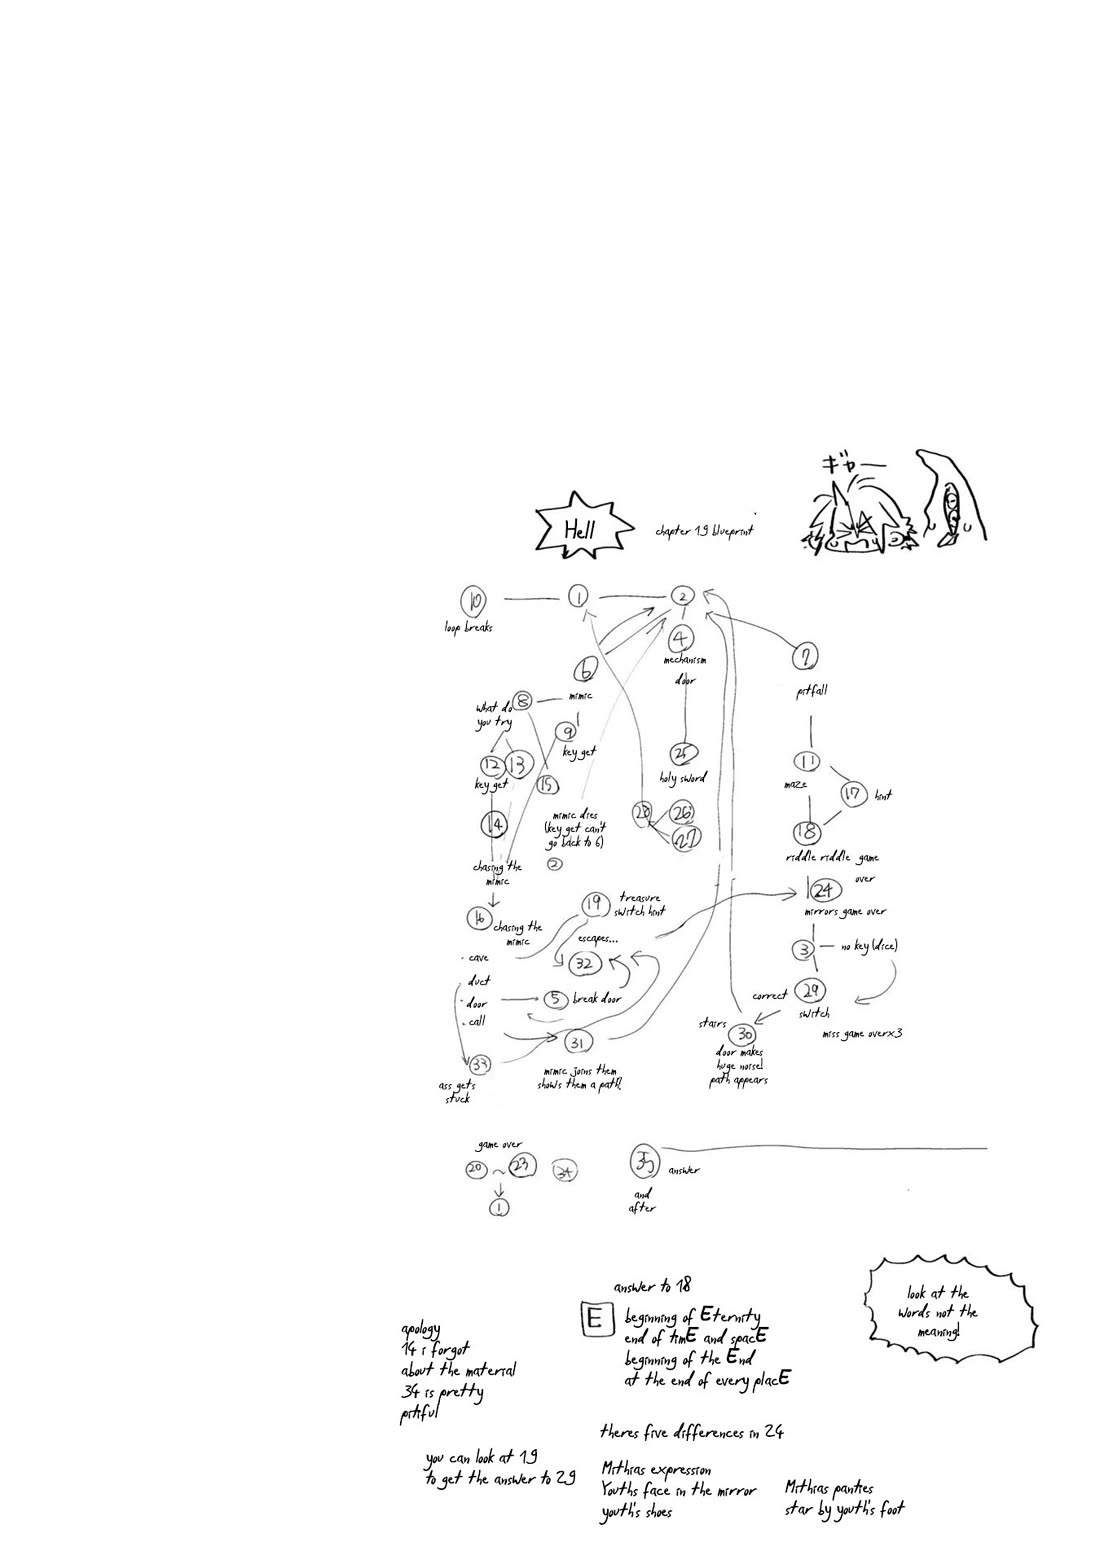 ギャー
Hell
chapter 19 blueprint
10
1
2
loop breaks
4
mechanism
door
7
pitfall
6
mimic
8
what do
you try
9
key get
12
13
key get
15
25
holy sword
11
maze
17
hint
14
mimic dies
(key get can't
go back to 6)
2
28
26
27
18
riddle riddle game
over
chasing the
mimic
16
chasing the
mimic
19
treasure
switch hint
24
mirrors game over
escapes...
32
3
no key (dice)
· cave
· duct
· door
· call
5
break door
29
switch
correct
miss game over×3
31
mimic joins them
shows them a path!
stairs
30
door makes
huge noise!
path appears
33
ass gets
stuck
game over
20 ~ 23
34
1
35
answer
and
after
answer to 18
E
beginning of Eternity
end of timE and spacE
beginning of the End
at the end of every placE
look at the
words not the
meaning!
apology
14 i forgot
about the material
34 is pretty
pitiful
theres five differences in 24
you can look at 19
to get the answer to 29
Mithias expression
Youths face in the mirror
youth's shoes
Mithias panties
star by youth's foot